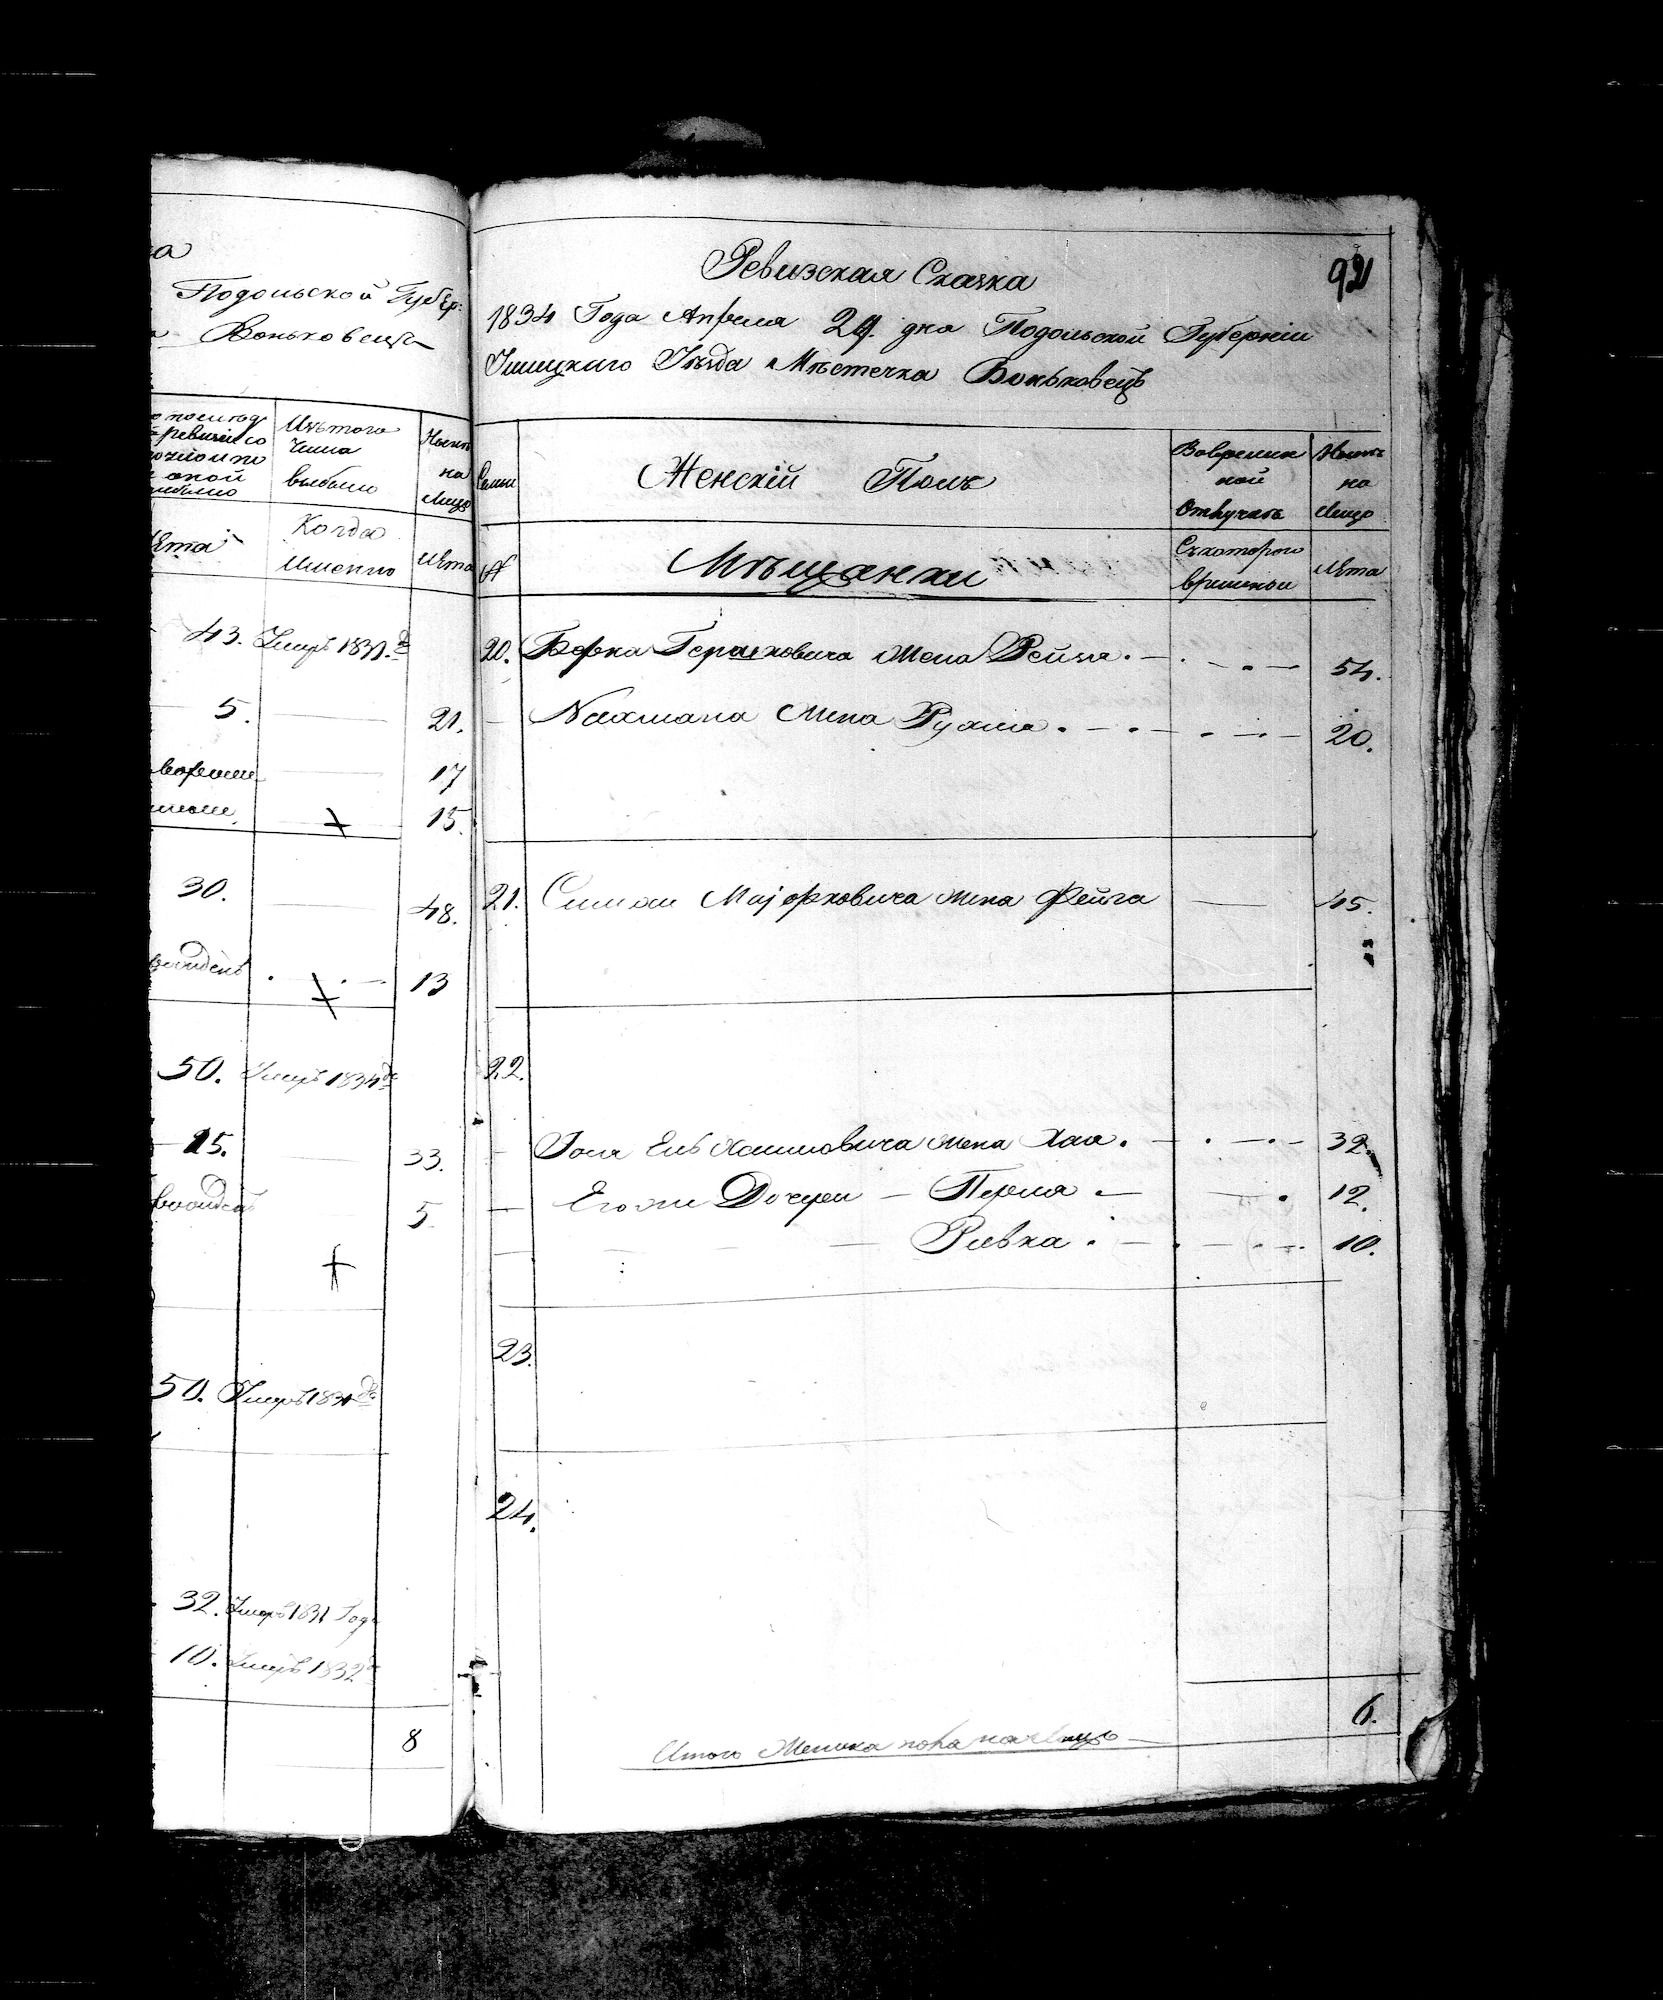 а
Подольской Губер:
Воньковецъ
Изъ того
числа
выбыло
Нынѣ
на
Лицо
Лѣта
Когда
Именно
Лѣта
43. Умеръ 1831.го
5. 21.
17
15.
30. 48.
13
50. Умеръ 1834го
15. 33.
5.
50. Умеръ 1831го
32. Умеръ 1831 Года
10. Умеръ 1832го
8
Ревизская Сказка
92
1834 Года Апреля 29. дня Подольской Губерніи
Ушицкаго Уезда Мѣстечка Воньковецъ
Семьи
Женскій Полъ
Во времен
ной
Отлучкѣ
Нынѣ
на
Лицо
№
Мѣщанки
Съ котораго
времени
Лѣта
20. Берка Гершковича жена Рейза. 54.
Нахмана жена Рухля. 20.
21. Симхи Маіорковича жена Фейга 45.
22.
Іося Ель Хаимовича жена Хая. 32.
Его же Дочери Перля 12.
Ривка. 10.
23.
24.
6.
Итого Женска пола на лицо